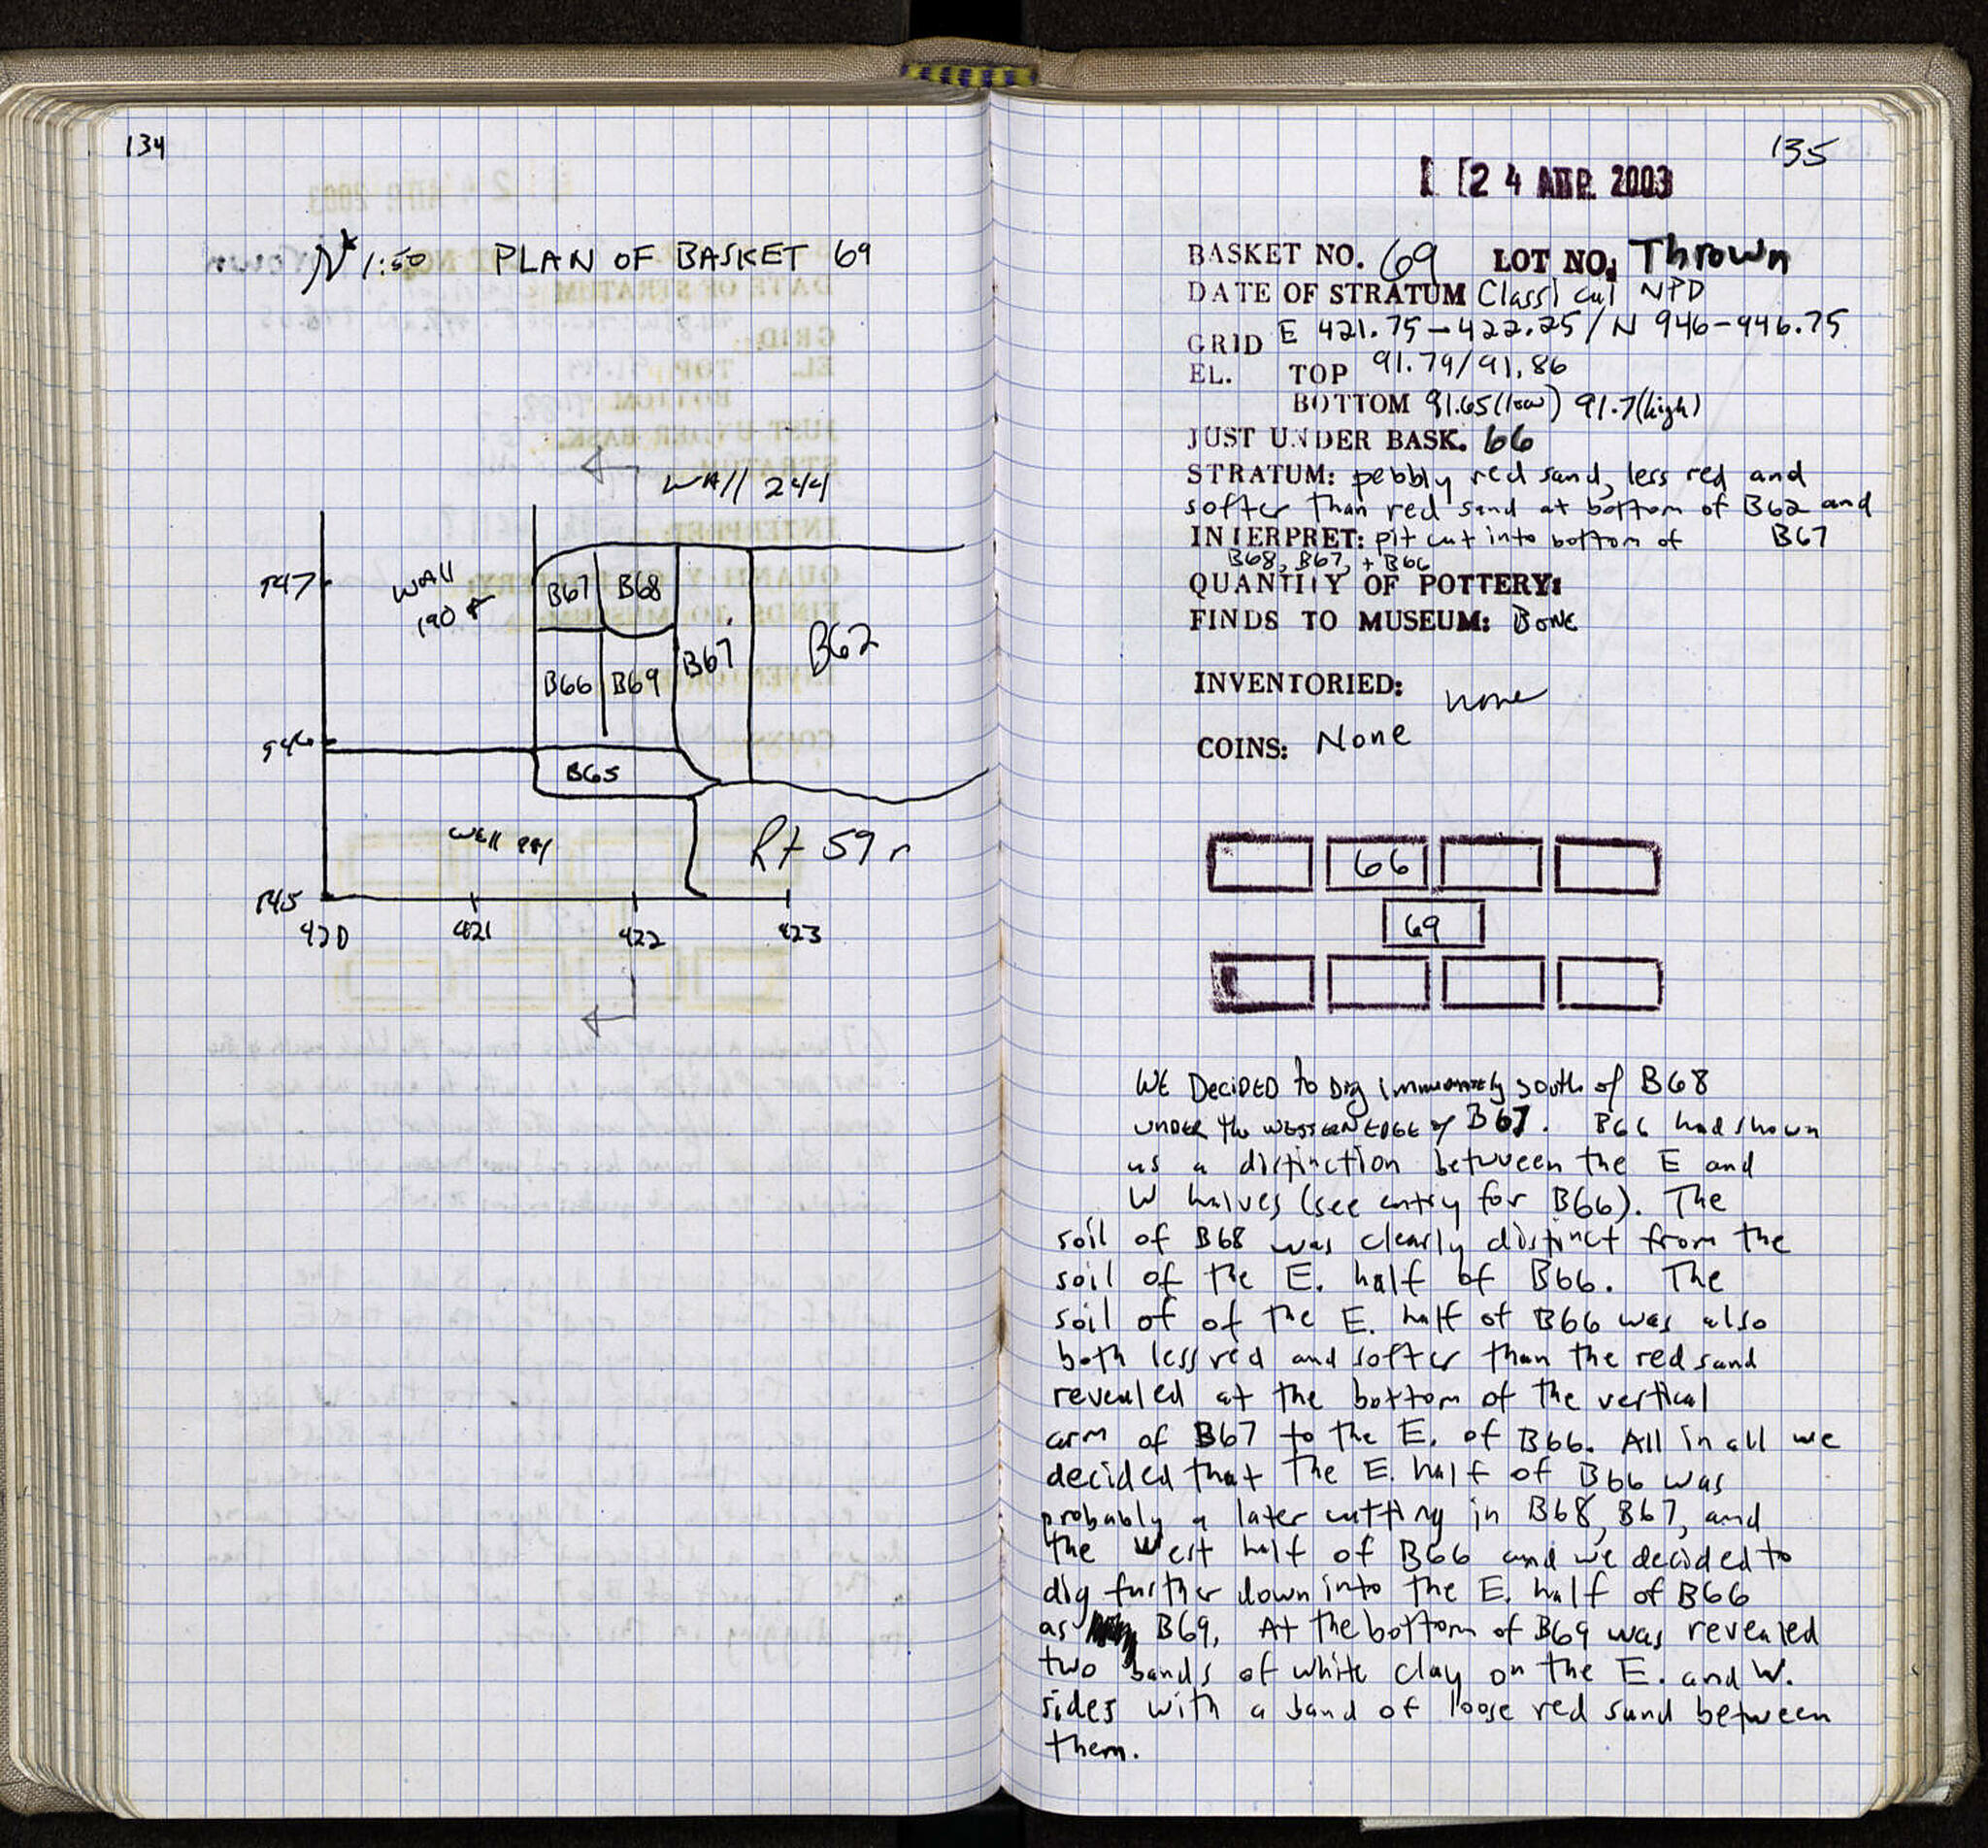 134
N 1:50 PLAN OF BASKET 69
WAll 244
947
WAll
190
B67 B68
B67
B62
B66 B69
946
B65
Well
Rt 59
945
420 421 422 423
135
24 ΑΠΡ. 2003
BASKET NO. 69 LOT NO. Thrown
DATE OF STRATUM Classical NPD
GRID E 421.75-422.25/N 946-946.75
EL. TOP 91.79/91.86
BOTTOM 91.65(low) 91.7(high)
JUST UNDER BASK. 66
STRATUM: pebbly red sand, less red and
softer than red sand at bottom of B62 and
B67
INTERPRET: pit cut into bottom of
B68, B67, + B66
QUANTITY OF POTTERY:
FINDS TO MUSEUM: BONE
INVENTORIED: none
COINS: None
66
69
WE DECIDED to Dig immediately south of B68
UNDER the WESTERN EDGE of B67. B66 had shown
us a distinction between the E and
W halves (see entry for B66). The
soil of B68 was clearly distinct from the
soil of the E. half of B66. The
soil of of the E. half of B66 was also
both less red and softer than the red sand
revealed at the bottom of the vertical
arm of B67 to the E. of B66. All in all we
decided that the E. half of B66 was
probably a later cutting in B68, B67, and
the West half of B66 and we decided to
dig further down into the E. half of B66
as B69. At the bottom of B69 was revealed
two bands of white clay on the E. and W.
sides with a band of loose red sand between
them.